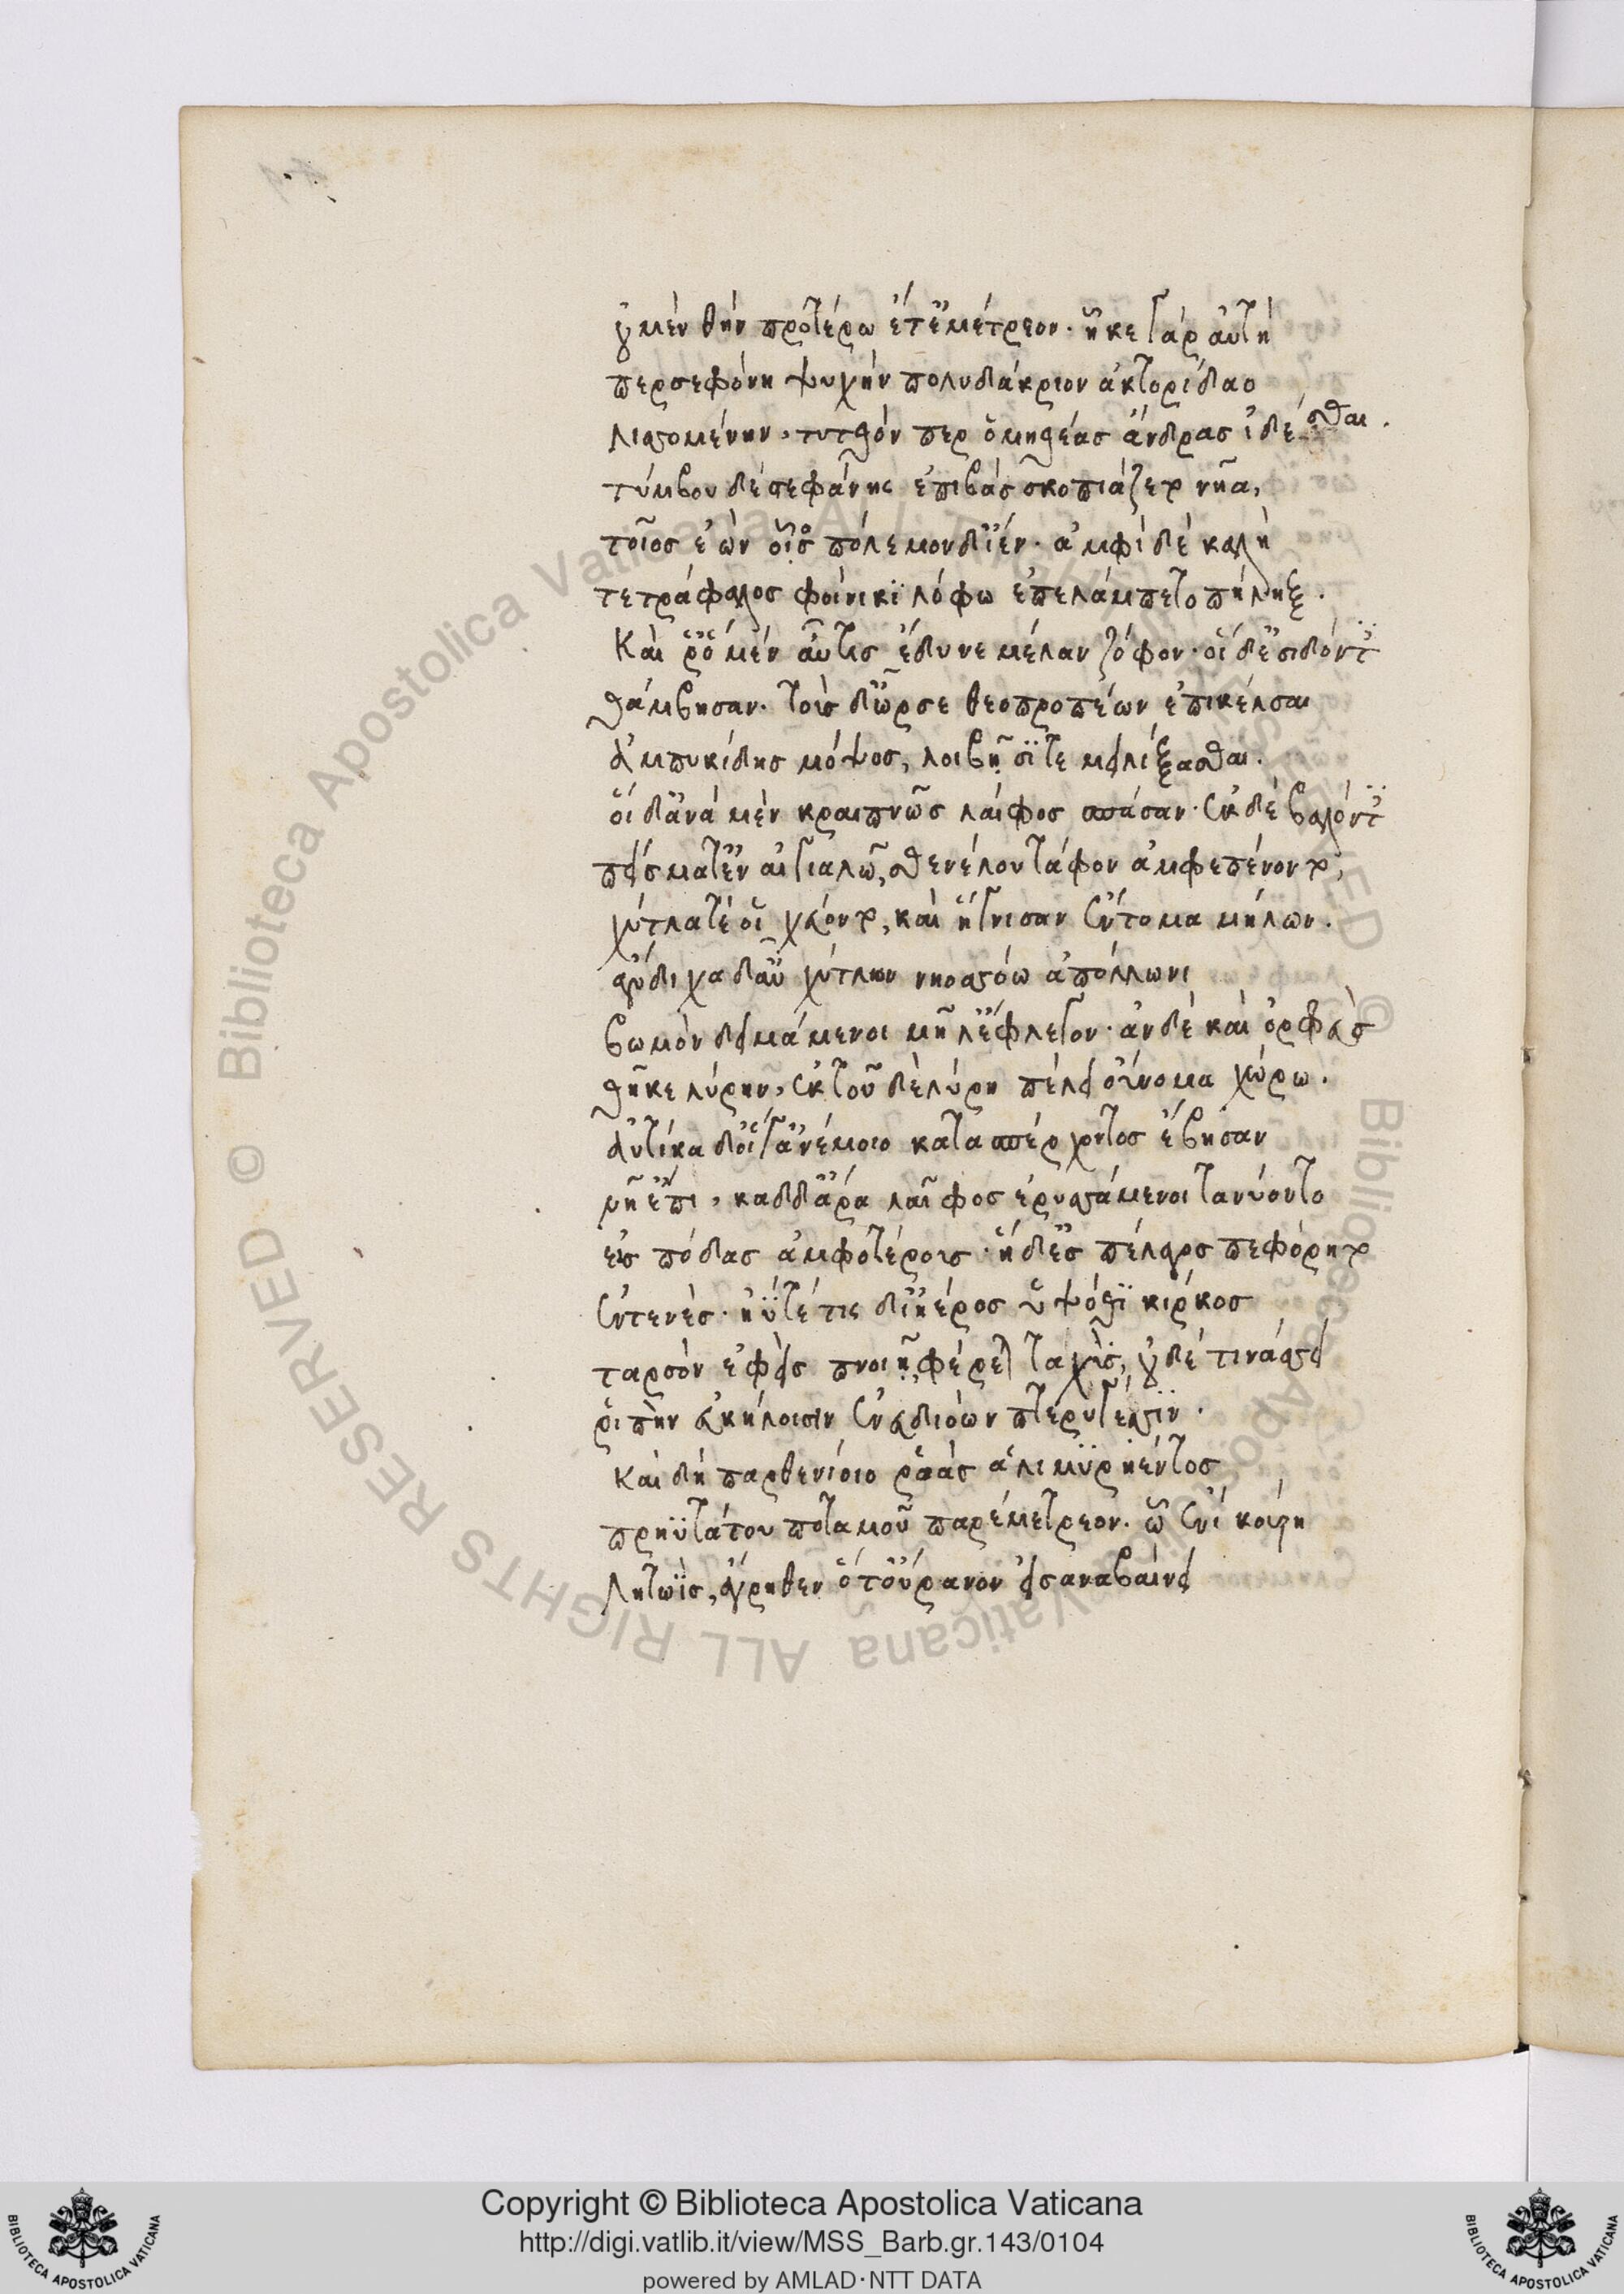 οὐ μὲν θὴν προτέρω ἔτ' ἐμέτρεον· ἧκε γὰρ αὐτὴ
περσεφόνη ψυχὴν πολυδάκριον ἀκτορίδαο
λισσομένην, τυτθόν περ ὁμηθέας ἄνδρας ἰδέσθαι.
τύμβου δὲ στεφάνης ἐπιβὰς σκοπιάζετο νῆα,
τοῖος ἐὼν οἷος πόλεμονδ' ἴεν· ἀμφὶ δὲ καλὴ
τετράφαλος φοίνικϊ λόφω ἐπελάμπετο πήληξ.
Καί ῥ' ὁ μὲν αὖτις ἔδυνε μέλαν ζόφον· οἱ δ' ἐσιδόντες
θάμβησαν. τοὺς δ' ὦρσε θεοπροπέων ἐπικέλσαι
ἀμπυκίδης μόψος, λοιβῇσΐ τε μειλίξασθαι.
οἱ δ' ἀνὰ μὲν κραιπνῶς λαίφος σπάσαν· ἐκ δὲ βαλόντες
πείσματ' ἐν αἰγιαλῶ, σθενέλου τάφον ἀμφεπένοντο,
χύτλα τέ οἱ χεύοντο, καὶ ἥγνισαν ἔντομα μήλων.
ἄνδιχα δ' αὖ χύτλων νηοσσόω ἀπόλλωνι
βωμὸν δειμάμενοι μῆλ' ἔφλεγον· ἂν δὲ καὶ ὀρφεὺς
θῆκε λύρην, ἐκ τοῦ δὲ λύρη πέλει οὔνομα χώρω.
αὐτίκα δ' οἵ γ' ἀνέμοιο κατασπέρχοντος ἔβησαν
νῆ' ἔπι, καδδ' ἄρα λαῖφος ἐρυσσάμενοι τανύοντο
εἰς πόδας ἀμφοτέρους· ἡ δ' ἐς πέλαγος πεφόρητο
ἐντενές· ἠΰτέ τις δι' ἠέρος ὑψόθϊ κίρκος
ταρσὸν ἐφεὶς πνοιῇ φέρεται ταχὺς, οὐδὲ τινάσσει
ῥιπὴν εὐκήλοισιν ἐνευδιόων πτερύγεσσϊν.
καὶ δὴ παρθενίοιο ῥοὰς ἁλιμϋρηέντος
πρηϋτάτου ποταμοῦ παρέμετρεον. ᾧ ἐνί κούρη
Λητωῒς, ἄγρηθεν ὅτ' οὐρανὸν εἰσαναβαίνει
Copyright © Biblioteca Apostolica Vaticana
http://digi.vatlib.it/view/MSS_Barb.gr.143/0104
powered by AMLAD·NTT DATA